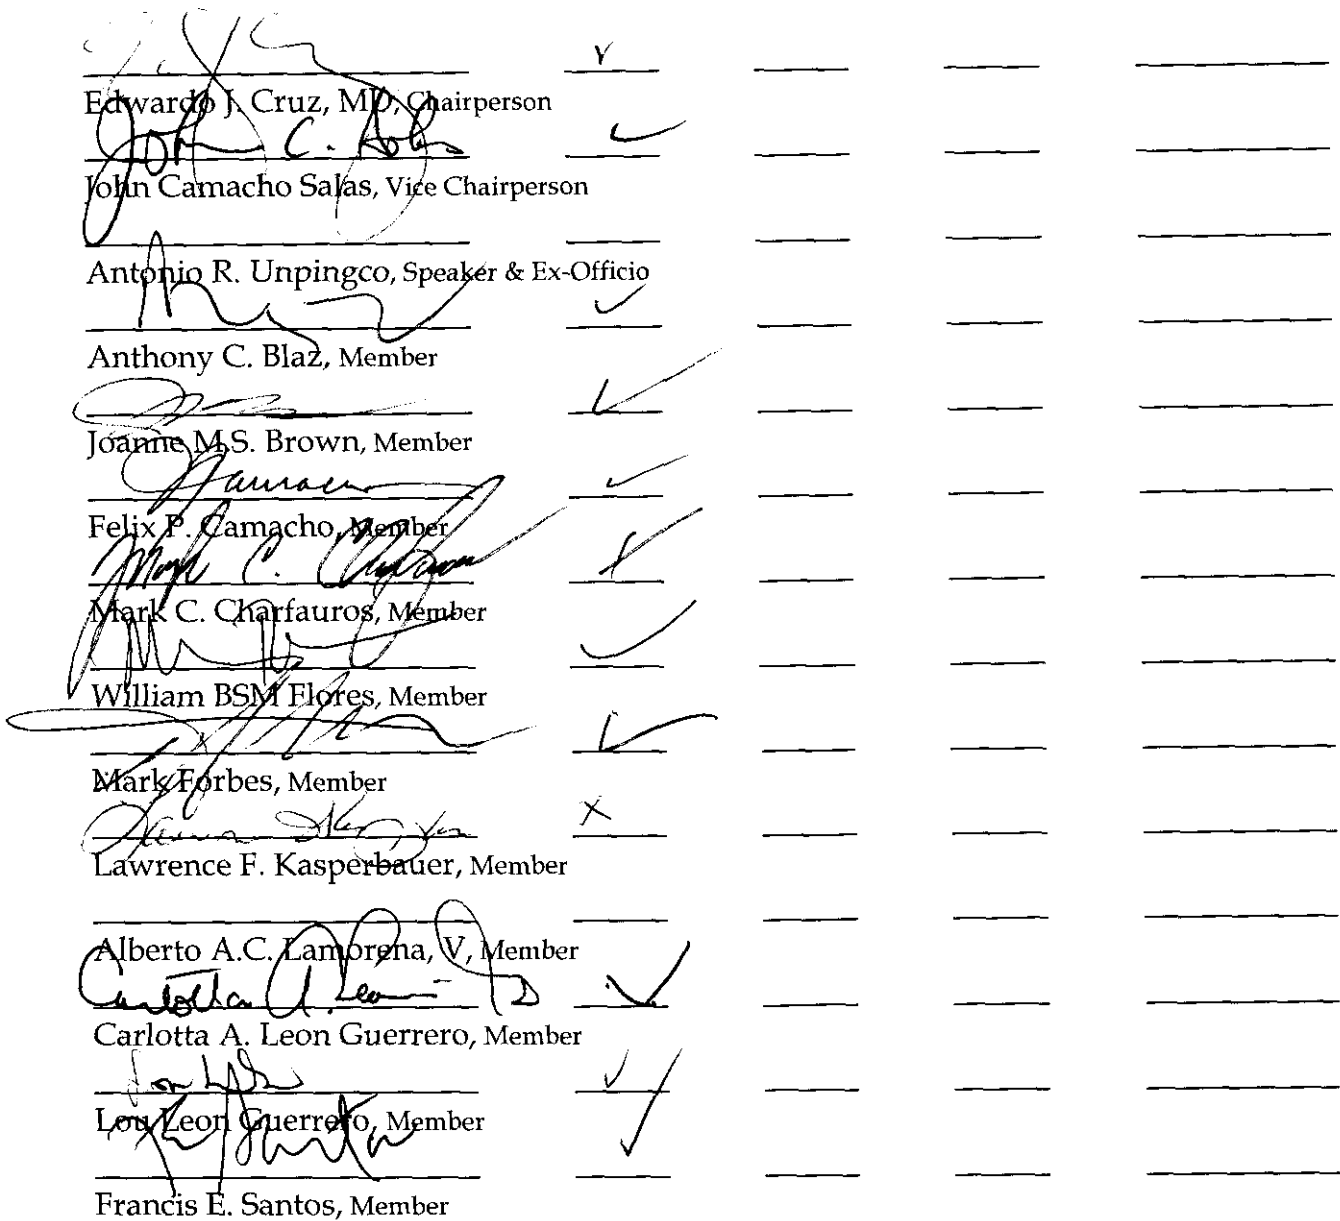 Edwardo J. Cruz, MD, Chairperson
John C. Salas
John Camacho Salas, Vice Chairperson
Antonio R. Unpingco, Speaker & Ex-Officio
Anthony C. Blaz, Member
Joanne M.S. Brown, Member
Felix P. Camacho, Member
Mark C. Charfauros
Mark C. Charfauros, Member
William BSM Flores, Member
Mark Forbes, Member
X
Lawrence F. Kasperbauer, Member
Alberto A.C. Lamorena, V, Member
Carlotta A. Leon
Carlotta A. Leon Guerrero, Member
Lou Leon Guerrero, Member
Francis E. Santos, Member